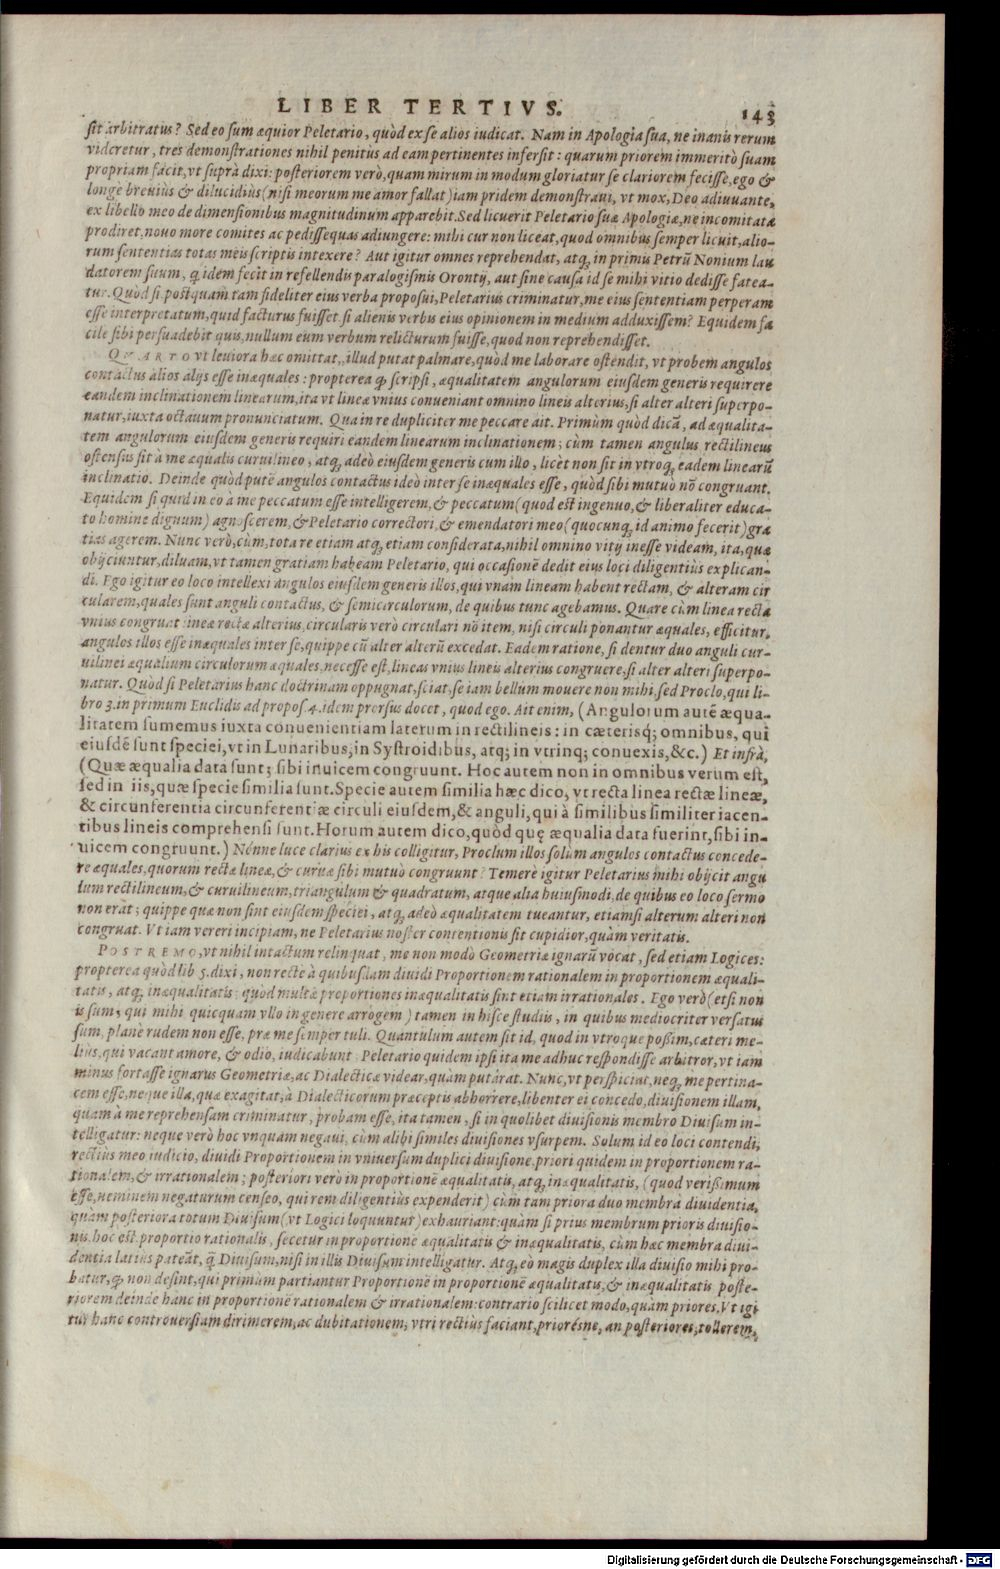 LIBER TERTIVS. 143
sit arbitratus? Sed eo sum æquior Peletario, quòd ex se alios iudicat. Nam in Apologia sua, ne inanis rerum
videretur, tres demonstrationes nihil penitùs ad eam pertinentes infersit: quarum priorem immeritò suam
propriam facit, vt suprà dixi: posteriorem verò, quam mirum in modum gloriatur se clariorem fecisse, ego &
longè breuiùs & dilucidiùs (nisi meorum me amor fallat) iam pridem demonstraui, vt mox, Deo adiuuante,
ex libello meo de dimensionibus magnitudinum apparebit. Sed licuerit Peletario suæ Apologiæ, ne incomitata
prodiret, nouo more comites ac pedissequas adiungere: mihi cur non liceat, quod omnibus semper licuit, alio-
rum sententias totas meis scriptis intexere? Aut igitur omnes reprehendat, atq; in primis Petrũ Nonium lau
datorem suum, q idem fecit in refellendis paralogismis Orontij, aut sine causa id se mihi vitio dedisse fatea-
tur. Quòd si postquam tam fideliter eius verba proposui, Peletarius criminatur, me eius sententiam perperam
esse interpretatum, quid facturus fuisset, si alienis verbis eius opinionem in medium adduxissem? Equidem fa
cilè sibi persuadebit quis, nullum eum verbum relicturum fuisse, quod non reprehendisset.
QVARTO vt leuiora hæc omittat, illud putat palmare, quòd me laborare ostendit, vt probem angulos
contactus alios alijs esse inæquales: propterea q scripsi, æqualitatem angulorum eiusdem generis requirere
eandem inclinationem linearum, ita vt lineæ vnius conueniant omnino lineis alterius, si alter alteri superpo-
natur, iuxta octauum pronunciatum. Qua in re dupliciter me peccare ait. Primùm quòd dicã, ad æqualita-
tem angulorum eiusdem generis requiri eandem linearum inclinationem; cùm tamen angulus rectilineus
ostensus sit à me æqualis curuilineo, atq; adeò eiusdem generis cum illo, licèt non sit in vtroq; eadem linearũ
inclinatio. Deinde quòd putẽ angulos contactus ideò inter se inæquales esse, quòd sibi mutuò nõ congruant.
Equidem si quid in eo à me peccatum esse intelligerem, & peccatum (quod est ingenuo, & liberaliter educa-
to homine dignum) agnoscerem, & Peletario correctori, & emendatori meo (quocunq; id animo fecerit) gra
tias agerem. Nunc verò, cùm, tota re etiam atq; etiam considerata, nihil omnino vitij inesse videam, ita, quæ
obijciuntur, diluam, vt tamen gratiam habeam Peletario, qui occasionẽ dedit eius loci diligentiùs explican-
di. Ego igitur eo loco intellexi angulos eiusdem generis illos, qui vnam lineam habent rectam, & alteram cir
cularem, quales sunt anguli contactus, & semicirculorum, de quibus tunc agebamus. Quare cùm linea recta
vnius congruat lineæ rectæ alterius, circularis verò circulari nõ item, nisi circuli ponantur æquales, efficitur,
angulos illos esse inæquales inter se, quippe cũ alter alterũ excedat. Eadem ratione, si dentur duo anguli cur-
uilinei æqualium circulorum æquales, necesse est, lineas vnius lineis alterius congruere, si alter alteri superpo-
natur. Quòd si Peletarius hanc doctrinam oppugnat, sciat, se iam bellum mouere non mihi, sed Proclo, qui li-
bro 3. in primum Euclidis ad propos. 4. idem prorsus docet, quod ego. Ait enim, (Angulorum autẽ æqua-
litatem sumemus iuxta conuenientiam laterum in rectilineis: in cæterisq; omnibus, qui
eiusdẽ sunt speciei, vt in Lunaribus, in Systroidibus, atq; in vtrinq; conuexis, &c.) Et infrà,
(Quæ æqualia data sunt; sibi inuicem congruunt. Hoc autem non in omnibus verum est,
sed in iis, quæ specie similia sunt. Specie autem similia hæc dico, vt recta linea rectæ lineæ,
& circunferentia circunferentiæ circuli eiusdem, & anguli, qui à similibus similiter iacen-
tibus lineis comprehensi sunt. Horum autem dico, quòd quę æqualia data fuerint, sibi in-
uicem congruunt.) Nónne luce clarius ex his colligitur, Proclum illos solùm angulos contactus concede-
re æquales, quorum rectæ lineæ, & curuæ sibi mutuò congruunt? Temerè igitur Peletarius mihi obijcit angu
lum rectilineum, & curuilineum, triangulum & quadratum, atque alia huiusmodi, de quibus eo loco sermo
non erat; quippe quæ non sint eiusdem speciei, atq; adeò æqualitatem tueantur, etiamsi alterum alteri non
congruat. Vt iam vereri incipiam, ne Peletarius noster contentionis sit cupidior, quàm veritatis.
POSTREMO, vt nihil intactum relinquat, me non modò Geometriæ ignarũ vocat, sed etiam Logices:
propterea quòd lib 5. dixi, non rectè à quibusdam diuidi Proportionem rationalem in proportionem æquali-
tatis, atq; inæqualitatis: quòd multæ proportiones inæqualitatis sint etiam irrationales. Ego verò (etsi non
is sum, qui mihi quicquam vllo in genere arrogem) tamen in hisce studiis, in quibus mediocriter versatus
sum, planè rudem non esse, præ me semper tuli. Quantulum autem sit id, quod in vtroque possim, cæteri me-
liùs, qui vacant amore, & odio, iudicabunt. Peletario quidem ipsi ita me adhuc respondisse arbitror, vt iam
minus fortasse ignarus Geometriæ, ac Dialecticæ videar, quàm putârat. Nunc, vt perspiciat, neq; me pertina-
cem esse, neque illa, quæ exagitat, à Dialecticorum præceptis abhorrere, libenter ei concedo, diuisionem illam,
quam à me reprehensam criminatur, probam esse, ita tamen, si in quolibet diuisionis membro Diuisum in-
telligatur: neque verò hoc vnquam negaui, cùm alibi similes diuisiones vsurpem. Solum id eo loci contendi,
rectiùs meo iudicio, diuidi Proportionem in vniuersum duplici diuisione, priori quidem in proportionem ra-
tionalem, & irrationalem; posteriori verò in proportionẽ æqualitatis, atq; inæqualitatis, (quod verissimum
esse, neminem negaturum censeo, qui rem diligentiùs expenderit) cùm tam priora duo membra diuidentia,
quàm posteriora totum Diuisum (vt Logici loquuntur) exhauriant: quàm si prius membrum prioris diuisio-
nis, hoc est, proportio rationalis, secetur in proportionẽ æqualitatis & inæqualitatis, cùm hæc membra diui-
dentia latiùs pateãt, q̃ Diuisum, nisi in illis Diuisum intelligatur. Atq; eò magis duplex illa diuisio mihi pro-
batur, q non desint, qui primùm partiantur Proportionẽ in proportionẽ æqualitatis, & inæqualitatis poste-
riorem deinde hanc in proportionẽ rationalem & irrationalem: contrario scilicet modo, quàm priores. Vt igi
tur hanc controuersiam dirimerem, ac dubitationem, vtri rectiùs faciant, priorésne, an posteriores, tollerem,
Digitalisierung gefördert durch die Deutsche Forschungsgemeinschaft - DFG